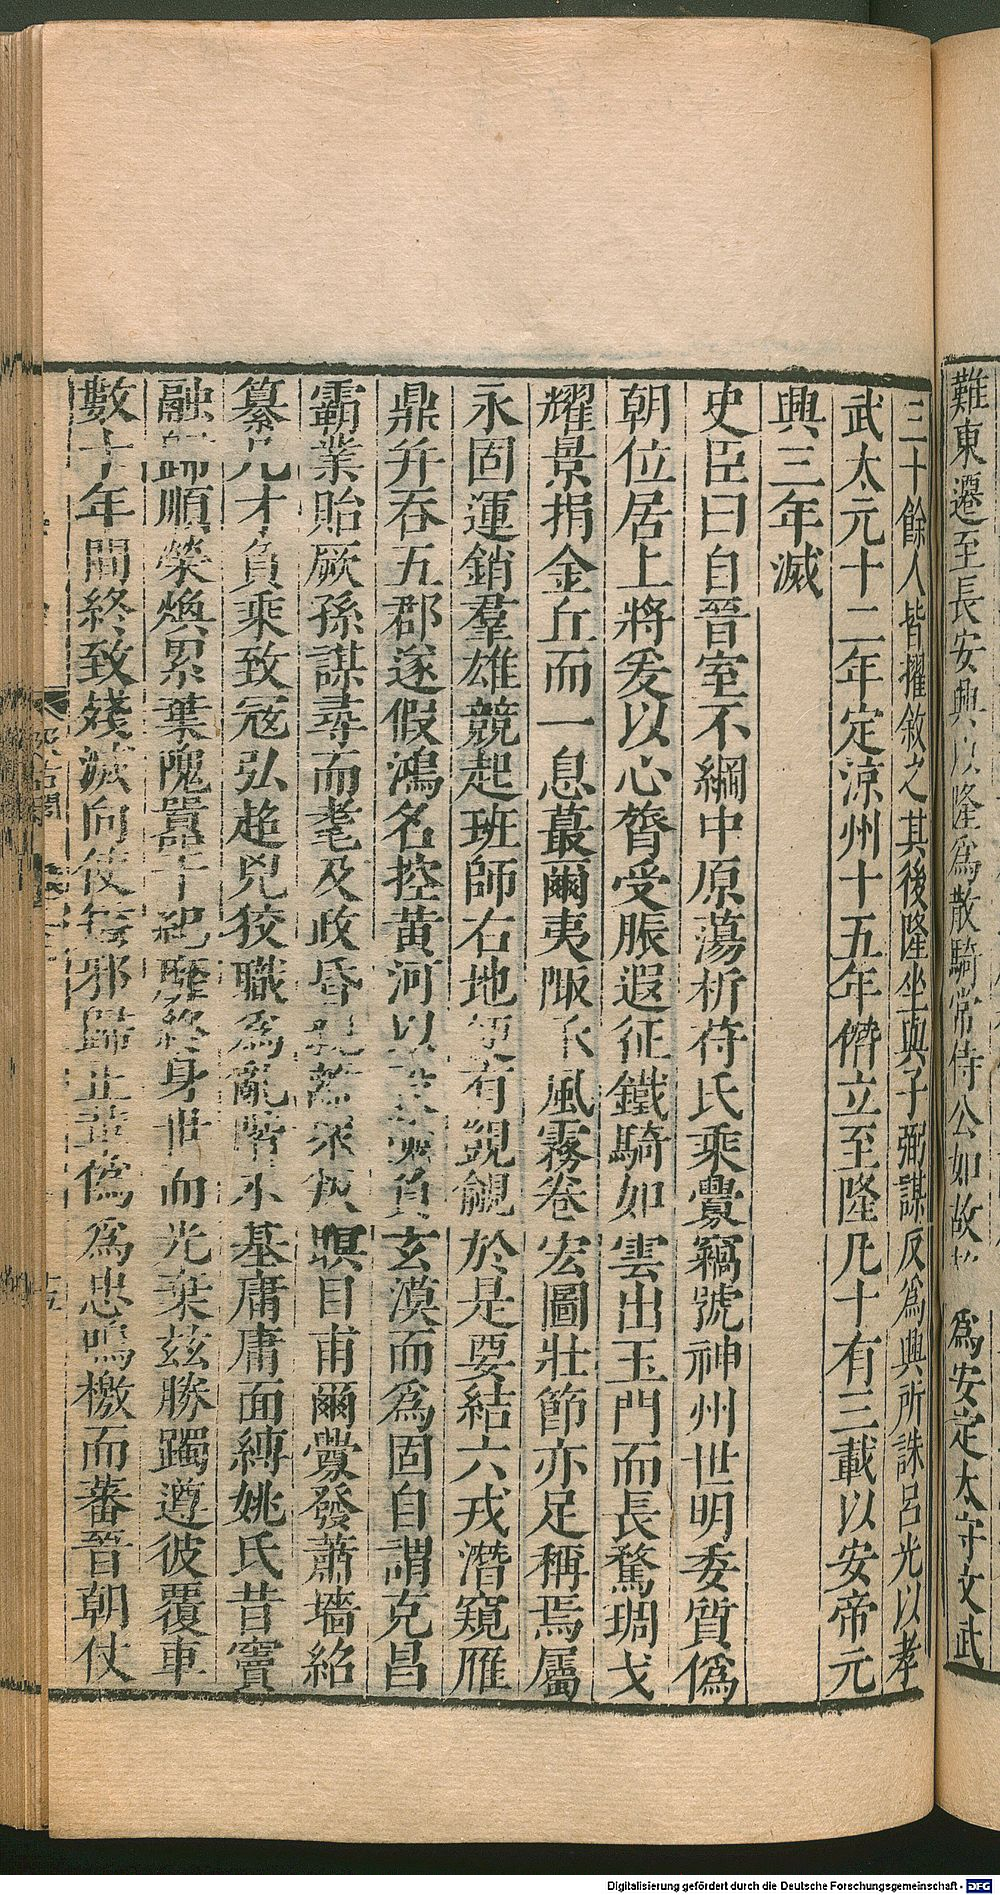 難東遷至長安興以隆爲散騎常侍公如故 爲安定太守文武
三十餘人皆擢敘之其後隆坐與子弼謀反爲興所誅呂光以孝
武太元十二年定涼州十五年僭立至隆凡十有三載以安帝元
興三年滅
史臣曰自晉室不綱中原蕩析苻氏乘釁竊號神州世明委質偽
朝位居上將爰以心膂受脤遐征鐵騎如雲出玉門而長騖琱戈
耀景捐金丘而一息蕞爾夷陬 風霧卷宏圖壯節亦足稱焉屬
永固運銷羣雄競起班師右地便有覬覦於是要結六戎潛窺雁
鼎并吞五郡遂假鴻名控黃河以設 負玄漠而爲固自謂克昌
霸業貽厥孫謀尋而耄及政昏親離衆叛瞑目甫爾釁發蕭墻紹
纂凡才負乘致寇弘趂兇狡職爲亂階永基庸庸面縛姚氏昔竇
融歸順榮煥累葉隗囂干紀靡終身世而光棄茲勝躅遵彼覆車
數十年間終致殘滅向使矯邪歸正革偽爲忠鳴檄而蕃晉朝仗
汲古閣
十五
Digitalisierung gefördert durch die Deutsche Forschungsgemeinschaft - DFG